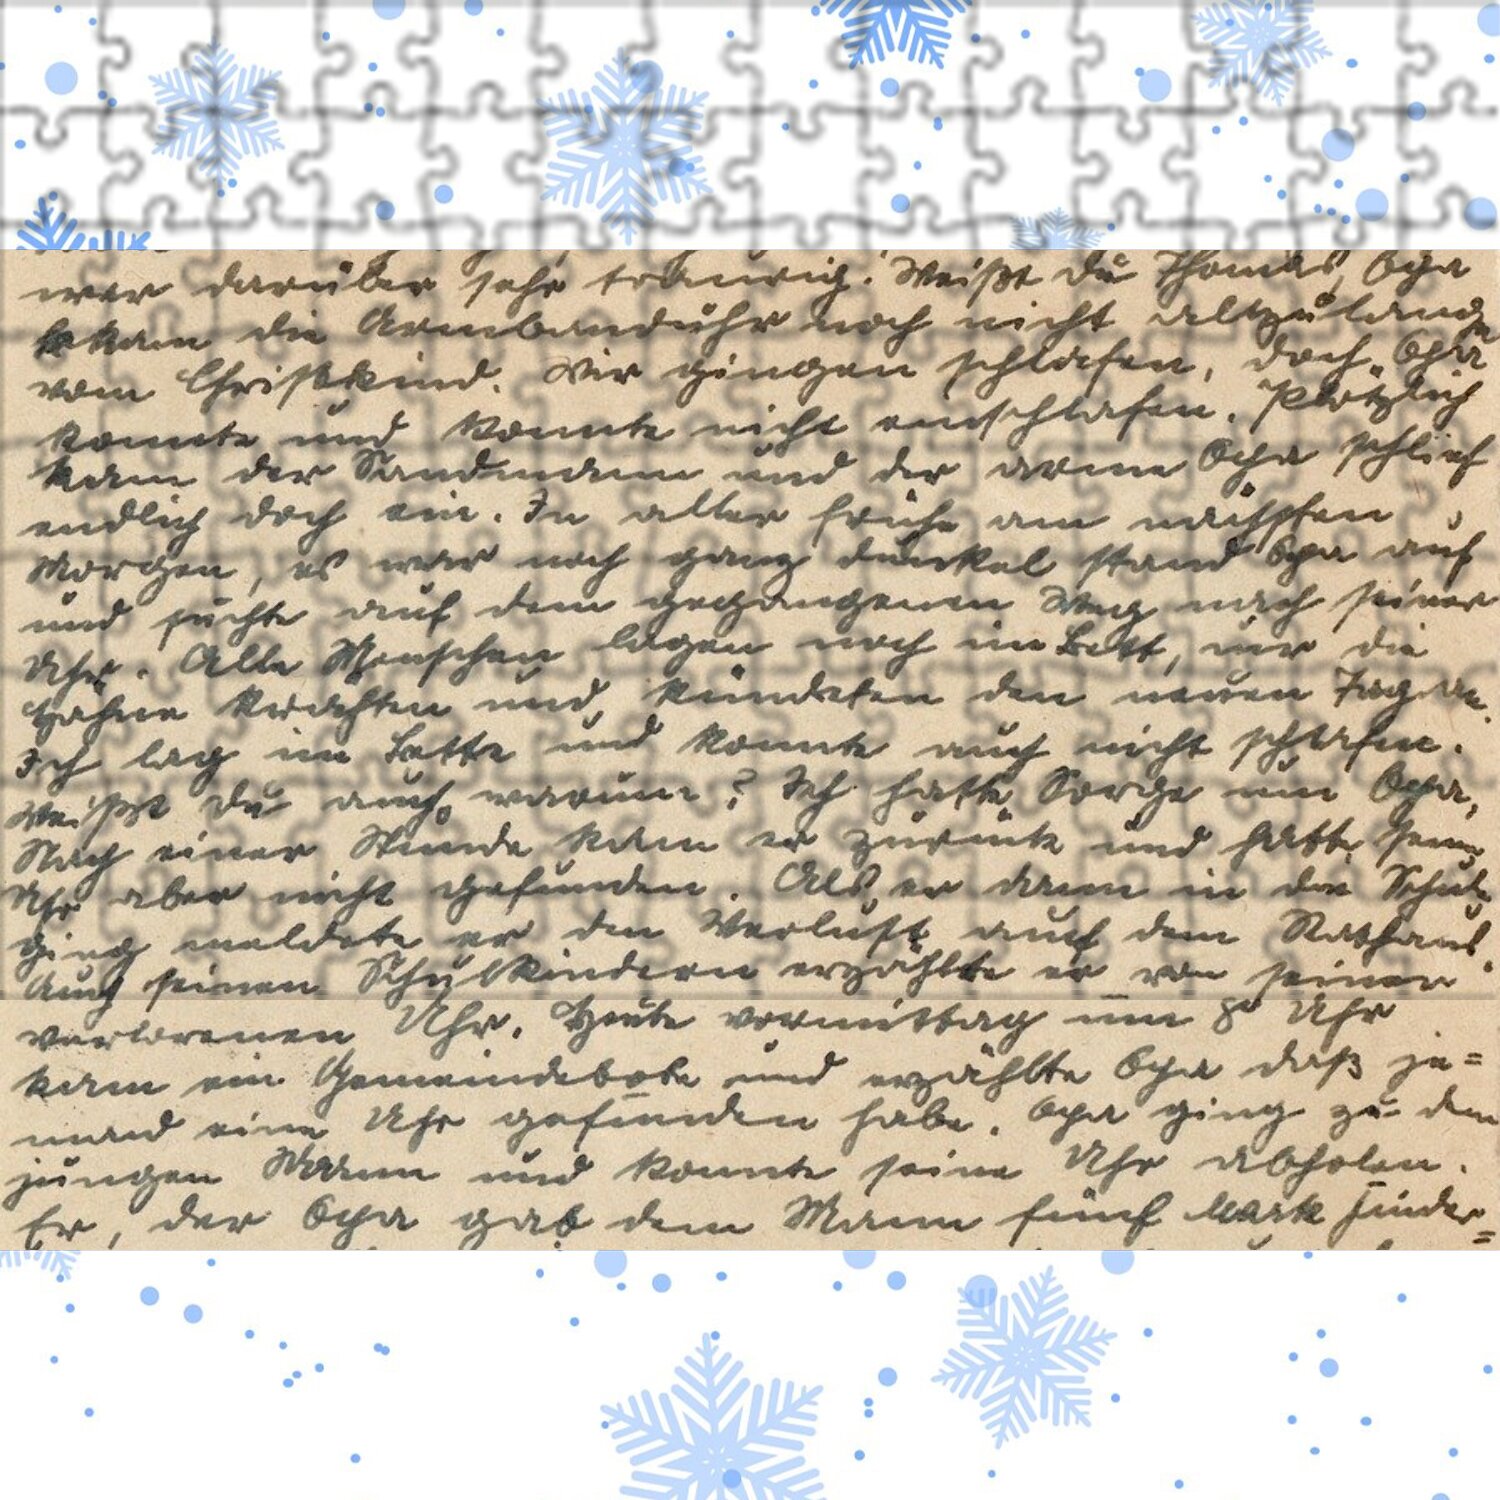 war darüber sehr traurig. Weißt Du Thomas, Opa
bekam die Armbanduhr noch nicht allzulange
vom Christkind. Wir gingen schlafen, doch Opa
konnte und konnte nicht einschlafen. Plötzlich
kam der Sandmann und der arme Opa schlief
endlich doch ein. In aller frühe am nächsten
Morgen, es war noch ganz dunkel stand Opa auf
und suchte auf dem gegangenen Weg nach seiner
Uhr. Alle Menschen lagen noch im Bett, nur die
Hähne krähten und kündeten den neuen Tag an.
Ich lag im Bette und konnte auch nicht schlafen.
Weißt Du auch warum? Ich hatte Sorge um Opa,
Nach einer Stunde kam er zurück und hatte seine
Uhr aber nicht gefunden. Als er dann in die Schule
ging meldete er den Verlust auf dem Rathaus.
Auch seinen Schulkindern erzählte er von seiner
verlorenen Uhr. Heute vormittag um 8° Uhr
kam ein Gemeindebote und erzählte Opa daß je=
mand eine Uhr gefunden habe. Opa ging zu dem
jungen Mann und konnte seine Uhr abholen.
Er, der Opa gab dem Mann fünf Mark Finder=